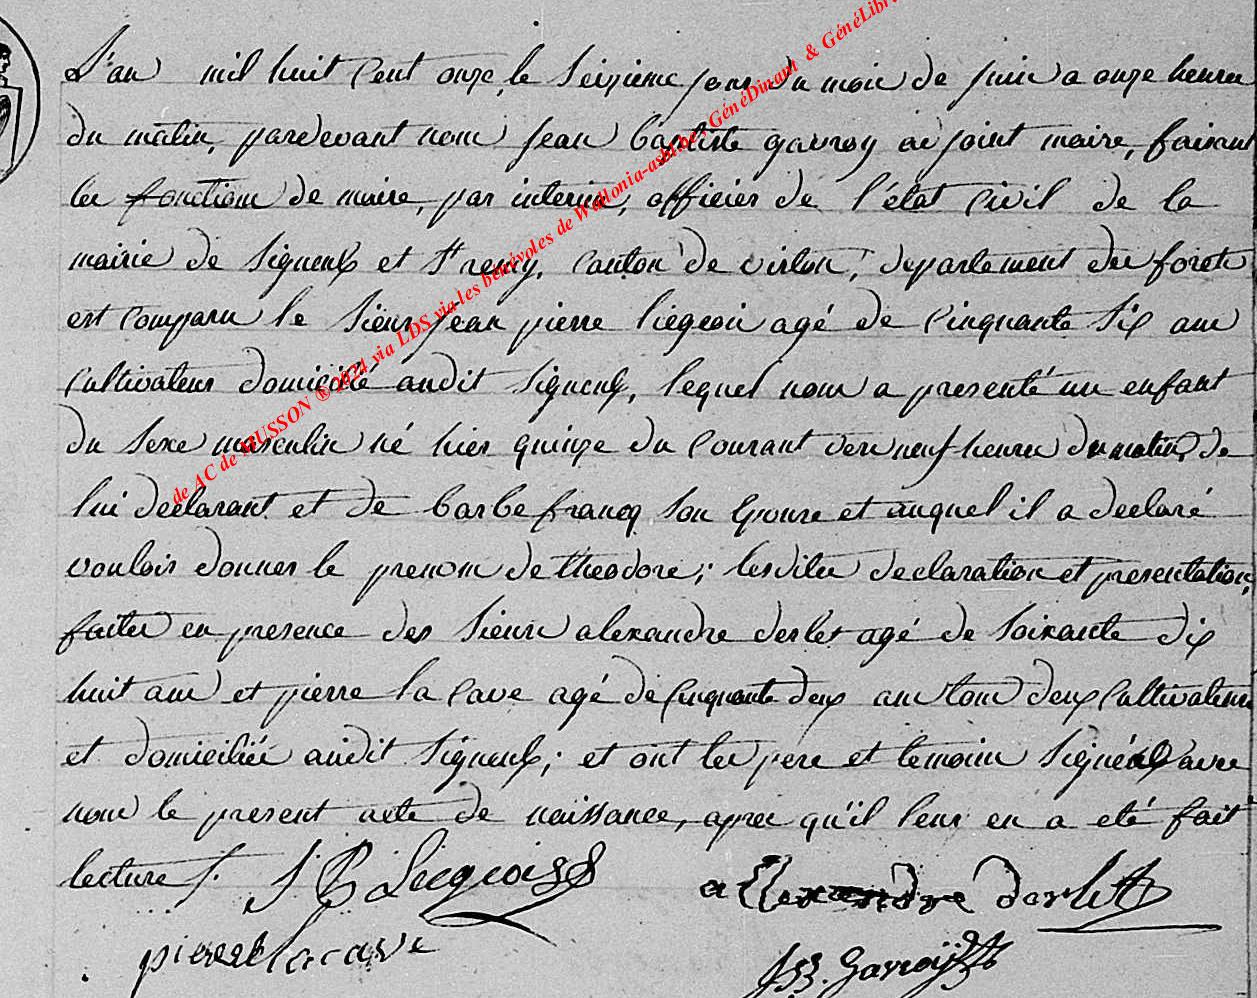 L'an mil huit cent onze, le seizieme jour du mois de juin a onze heures
du matin, pardevant nous jean baptiste gavroy adjoint maire, faisant
les fonctions de maire, par interim, officier de l'état civil de la
mairie de Signeulx et St remy, canton de virton, departement des forets
est comparu le sieur jean pierre liegeois agé de cinquante six ans
cultivateur domicilié audit Signeulx, lequel nous a presenté un enfant
du sexe masculin né hier quinze du courant vers neuf heures du matin, de
lui declarant et de barbe francq son epouse et auquel il a declaré
vouloir donner le prenom de theodore; lesdites declaration et presentation
faites en presence des sieurs alexandre derlet agé de soixante dix
huit ans et pierre la cave agé de cinquante deux ans tous deux cultivateurs
et domiciliés audit Signeulx; et ont les pere et temoins signé avec
nous le present acte de naissance, apres qu'il leur en a eté fait
lecture /.
J P Liegeois
alexandre darlet
pierre lacave
JB. Gavroij
de AC de MUSSON ® 2024 via LDS via les bénévoles de Wallonia-asbl.be, GénéDinant & GénéLibr